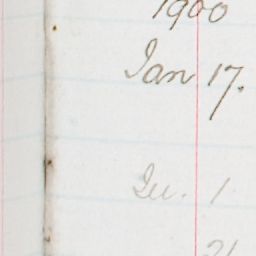 1900
Jan 17.
Ju. 1
21